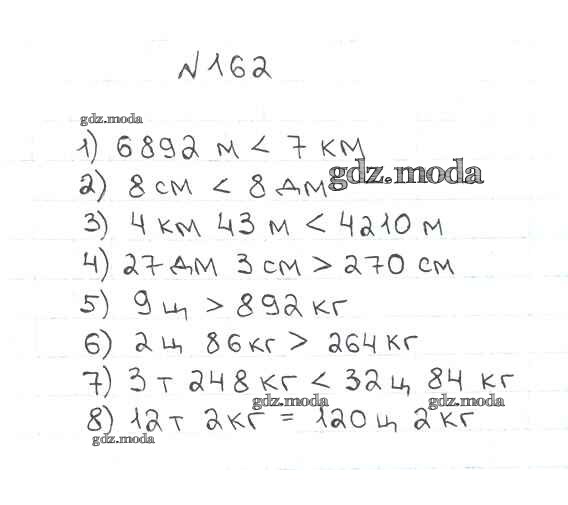 № 162
gdz.moda
1) 6892 м < 7 км
gdz.moda
2) 8 см < 8 дм
3) 4 км 43 м < 4210 м
4) 27 дм 3 см > 270 см
5) 9 ц > 892 кг
6) 2 ц 86 кг > 264 кг
7) 3 т 248 кг < 32 ц 84 кг
gdz.moda gdz.moda
8) 12 т 2 кг = 120 ц 2 кг
gdz.moda